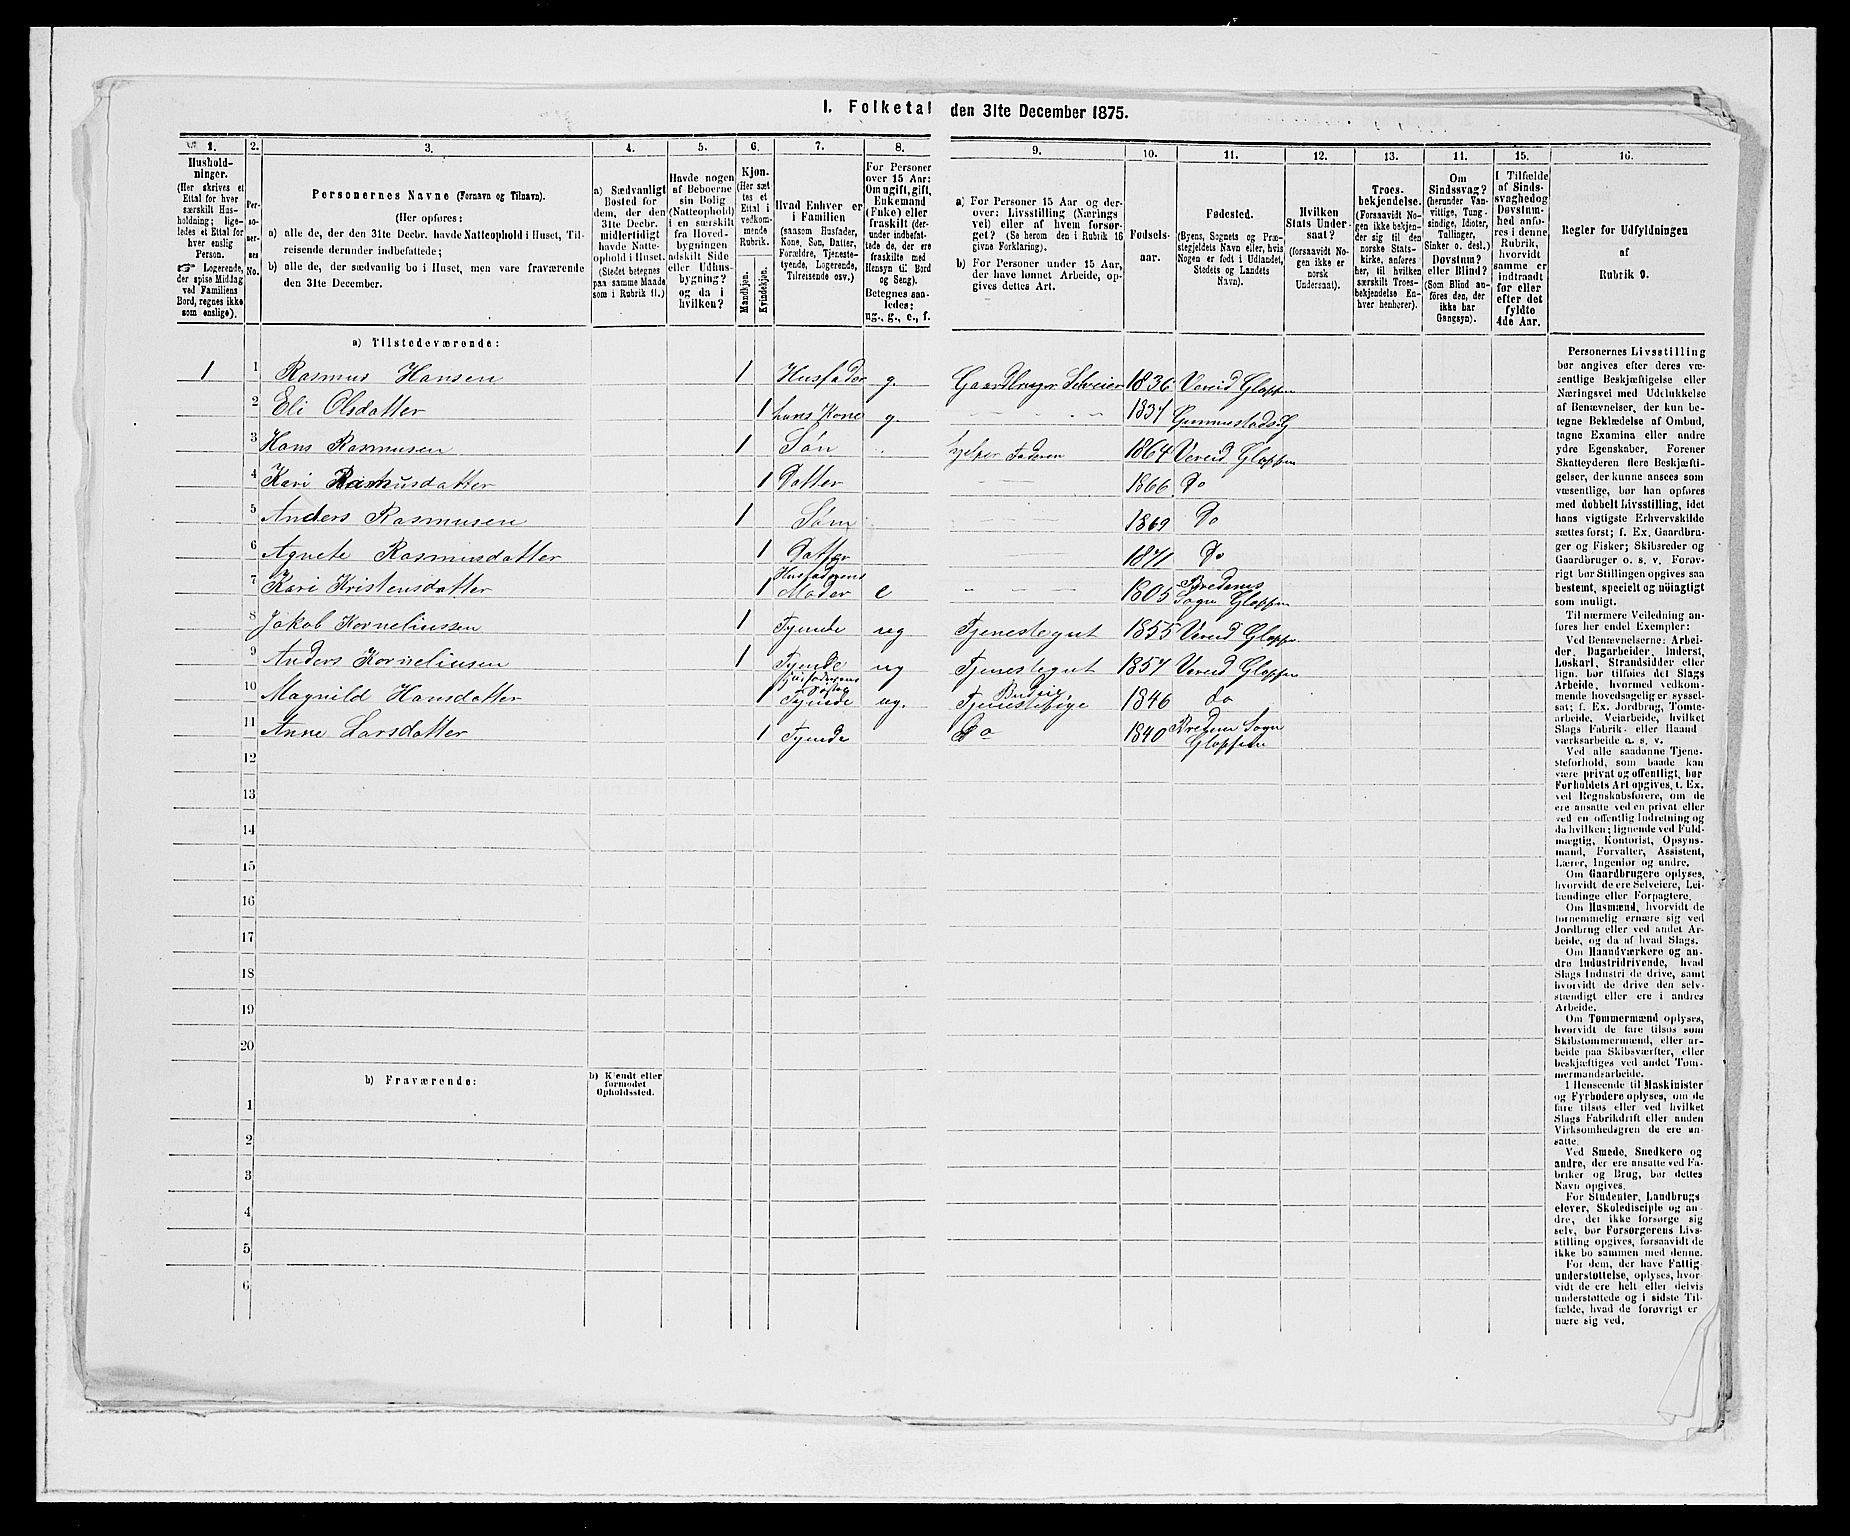 I. Folketal den 31te December 1875.
1. 2. 3. 4. 5. 6. 7. 8. 9. 10. 11. 12. 13. 11. 15. 16.
Hushold-
ninger.
(Her skrives et
Ettal for hver
særskilt Hus-
holdning; lige-
ledes et Ettal for
hver enslig
Person.
☞ Logerende,
der spise Middag
ved Familiens
Bord, regnes ikke
som enslige).
Per-
so-
ner-
nes
No.
Personernes Navne (Fornavn og Tilnavn).
(Her opføres:
a) alle de, der den 31te Decbr. havde Natteophold i Huset, Til-
reisende derunder indbefattede;
b) alle de, der sædvanlig bo i Huset, men vare fraværende
den 31te December.
a) Sædvanligt
Bosted for
dem, der den
31te Decbr.
midlertidigt
havde Natte-
ophold i Huset.
(Stedet betegnes
paa samme Maade
som i Rubrik 11.)
Havde nogen
af Beboerne
sin Bolig
(Natteophold)
i en særskilt
fra Hoved-
bygningen
adskilt Side
eller Udhus-
bygning?
og da i
hvilken?
Kjøn.
(Her sæt-
tes et
Ettal i
vedkom-
mende
Rubrik.
Mandkjøn.
Kvindekjøn.
Hvad Enhver er
i Familien
(saasom Husfader,
Kone, Søn, Datter,
Forældre, Tjeneste-
tyende, Logerende,
Tilreisende osv.)
For Personer
over 15 Aar:
Om ugift, gift,
Enkemand
(Enke) eller
fraskilt (der-
under indbefat-
tede de, der ere
fraskilte med
Hensyn til Bord
og Seng).
Betegnes saa-
ledes:
ug., g., e., f.
a) For Personer 15 Aar og der-
over: Livsstilling (Nærings-
vei) eller af hvem forsør-
get? (Se herom den i Rubrik 16
givne Forklaring).
b) For Personer under 15 Aar,
der have lønnet Arbeide, op-
gives dettes Art.
Fødsels-
aar.
Fødested.
(Byens, Sognets og Præs-
tegjeldets Navn eller, hvis
Nogen er født i Udlandet,
Stedets og Landets
Navn).
Hvilken
Stats Under-
saat?
(forsaavidt No-
gen ikke er
norsk
Undersaat).
Troes-
bekjendelse.
(Forsaavidt No-
gen ikke bekjen-
der sig til den
norske Stats-
kirke, anføres
her, til hvilken
særskilt Troes-
bekjendelse En-
hver henhører).
Om
Sindssvag?
(herunder Van-
vittige, Tung-
sindige, Idioter,
Tullinger,
Sinker o. desl.)
Døvstum?
eller Blind?
(Som Blind an-
føres den, der
ikke har
Gangsyn).
I Tilfælde
af Sinds-
svaghed og
Døvstum-
hed anfø-
res i denne
Rubrik,
hvorvidt
samme er
indtraadt
før eller
efter det
fyldte
4de Aar.
Regler for Udfyldningen
af
Rubrik 9.
a) Tilstedeværende:
1 1 Rasmus Hansen 1 Husfader g. Gaardbruger Selveier 1836 Vereid Gloppen
2 Eli Olsdatter 1 hans Kone g. 1834
3 Hans Rasmusen 1 Søn hjelper Faderen 1864 Vereid Gloppen
4 Kari Rasmusdatter 1 Datter 1866 Do
5 Anders Rasmusen 1 Søn 1869 Do
6 Agnete Rasmusdatter 1 Datter 1871 Do
7 Kari Kristensdatter 1 Husfaderens Moder e 1805 Bredems Sogn Gloppen
8 Jakob Korneliussen 1 Tyende ug Tjenestegut 1855 Vereid Gloppen
9 Anders Korneliusen 1 Tyende ug Tjenestegut 1857 Vereid Gloppen
10 Magnild Hansdatter 1 Husfaderens Tyende ug. Budeie, Tjenestepige 1846 do
11 Anne Larsdatter 1 Tyende Do 1840 Bredem Sogn Gloppen
12
13
14
15
16
17
18
19
20
b) Fraværende:
b) Kjendt eller
formodet
Opholdssted.
1
2
3
4
5
6
Personernes Livsstilling
bør angives efter deres væ-
sentlige Beskjæftigelse eller
Næringsvei med Udelukkelse
af Benævnelser, der kun be-
tegne Beklædelse af Ombud,
tagne Examina eller andre
ydre Egenskaber. Forener
Skatteyderen flere Beskjæfti-
gelser, der kunne ansees som
væsentlige, bør han opføres
med dobbelt Livsstilling, idet
hans vigtigste Erhvervskilde
sættes først; f. Ex. Gaardbru-
ger og Fisker; Skibsreder og
Gaardbruger o. s. v. Forøv-
rigt bør Stillingen opgives saa
bestemt, specielt og nøiagtigt
som muligt.
Til nærmere Veiledning an-
føres her endel Exempler:
Ved Benævnelserne: Arbei-
der, Dagarbeider, Inderst,
Løskarl, Strandsidder eller
lign. bør tilføies det Slags
Arbeide, hvormed vedkom-
mende hovedsagelig er syssel-
sat; f. Ex. Jordbrug, Tomte-
arbeide, Veiarbeide, hvilket
Slags Fabrik- eller Haand
værksarbeide o. s. v.
Ved alle saadanne Tjene-
steforhold, som baade kan
være privat og offentligt, bør
Forholdets Art opgives, t. Ex.
ved Regnskabsførere, om de
ere ansatte ved en privat eller
ved en offentlig Indretning og
da hvilken; lignende ved Fuld-
mægtig, Kontorist, Opsyns-
mand, Forvalter, Assistent,
Lærer, Ingeniør og andre.
Om Gaardbrugere oplyses,
hvorvidt de ere Selveiere, Lei-
lændinge eller Forpagtere.
Om Husmænd, hvorvidt de
fornemmelig ernære sig ved
Jordbrug eller ved andet Ar-
beide, og da af hvad Slags.
Om Haandværkere og an-
dre Industridrivende, hvad
Slags Industri de drive, samt
hvorvidt de drive den selv-
stændigt eller ere i andres
Arbeide.
Om Tømmermænd oplyses,
hvorvidt de fare tilsøs som
Skibstømmermænd, eller ar-
beide paa Skibsværfter, eller
beskjæftiges ved andet Tøm-
mermandsarbeide.
I Henseende til Maskinister
og Fyrbødere oplyses, om de
fare tilsøs eller ved hvilket
Slags Fabrikdrift eller anden
Virksomhedsgren de ere an-
satte.
Ved Smede, Snedkere og
andre, der ere ansatte ved Fa-
briker og Brug, bør dettes
Navn opgives.
For Studenter, Landbrugs
elever, Skoledisciple og an-
dre, der ikke forsørge sig
selv, bør Forsørgerens Livs-
stilling opgives, forsaavidt de
ikke bo sammen med denne.
For dem, der have Fattig-
understøttelse, oplyses, hvor-
vidt de ere helt eller delvis
understøttede og i sidste Til-
fælde, hvad de forøvrigt er
nære sig ved.